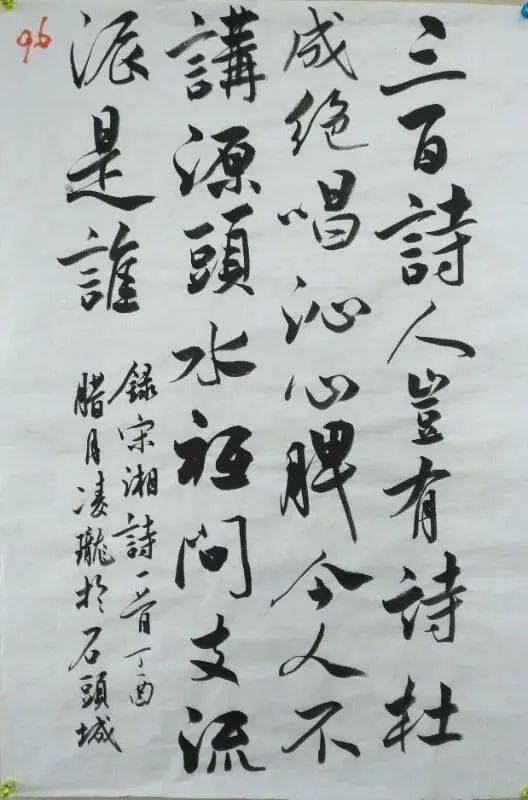 三百詩人豈有詩杜
成绝唱沁心脾今人不
講源頭水祗問支流
派是誰
録宋湘詩一首丁酉
腊月凌瓏於石頭城
96